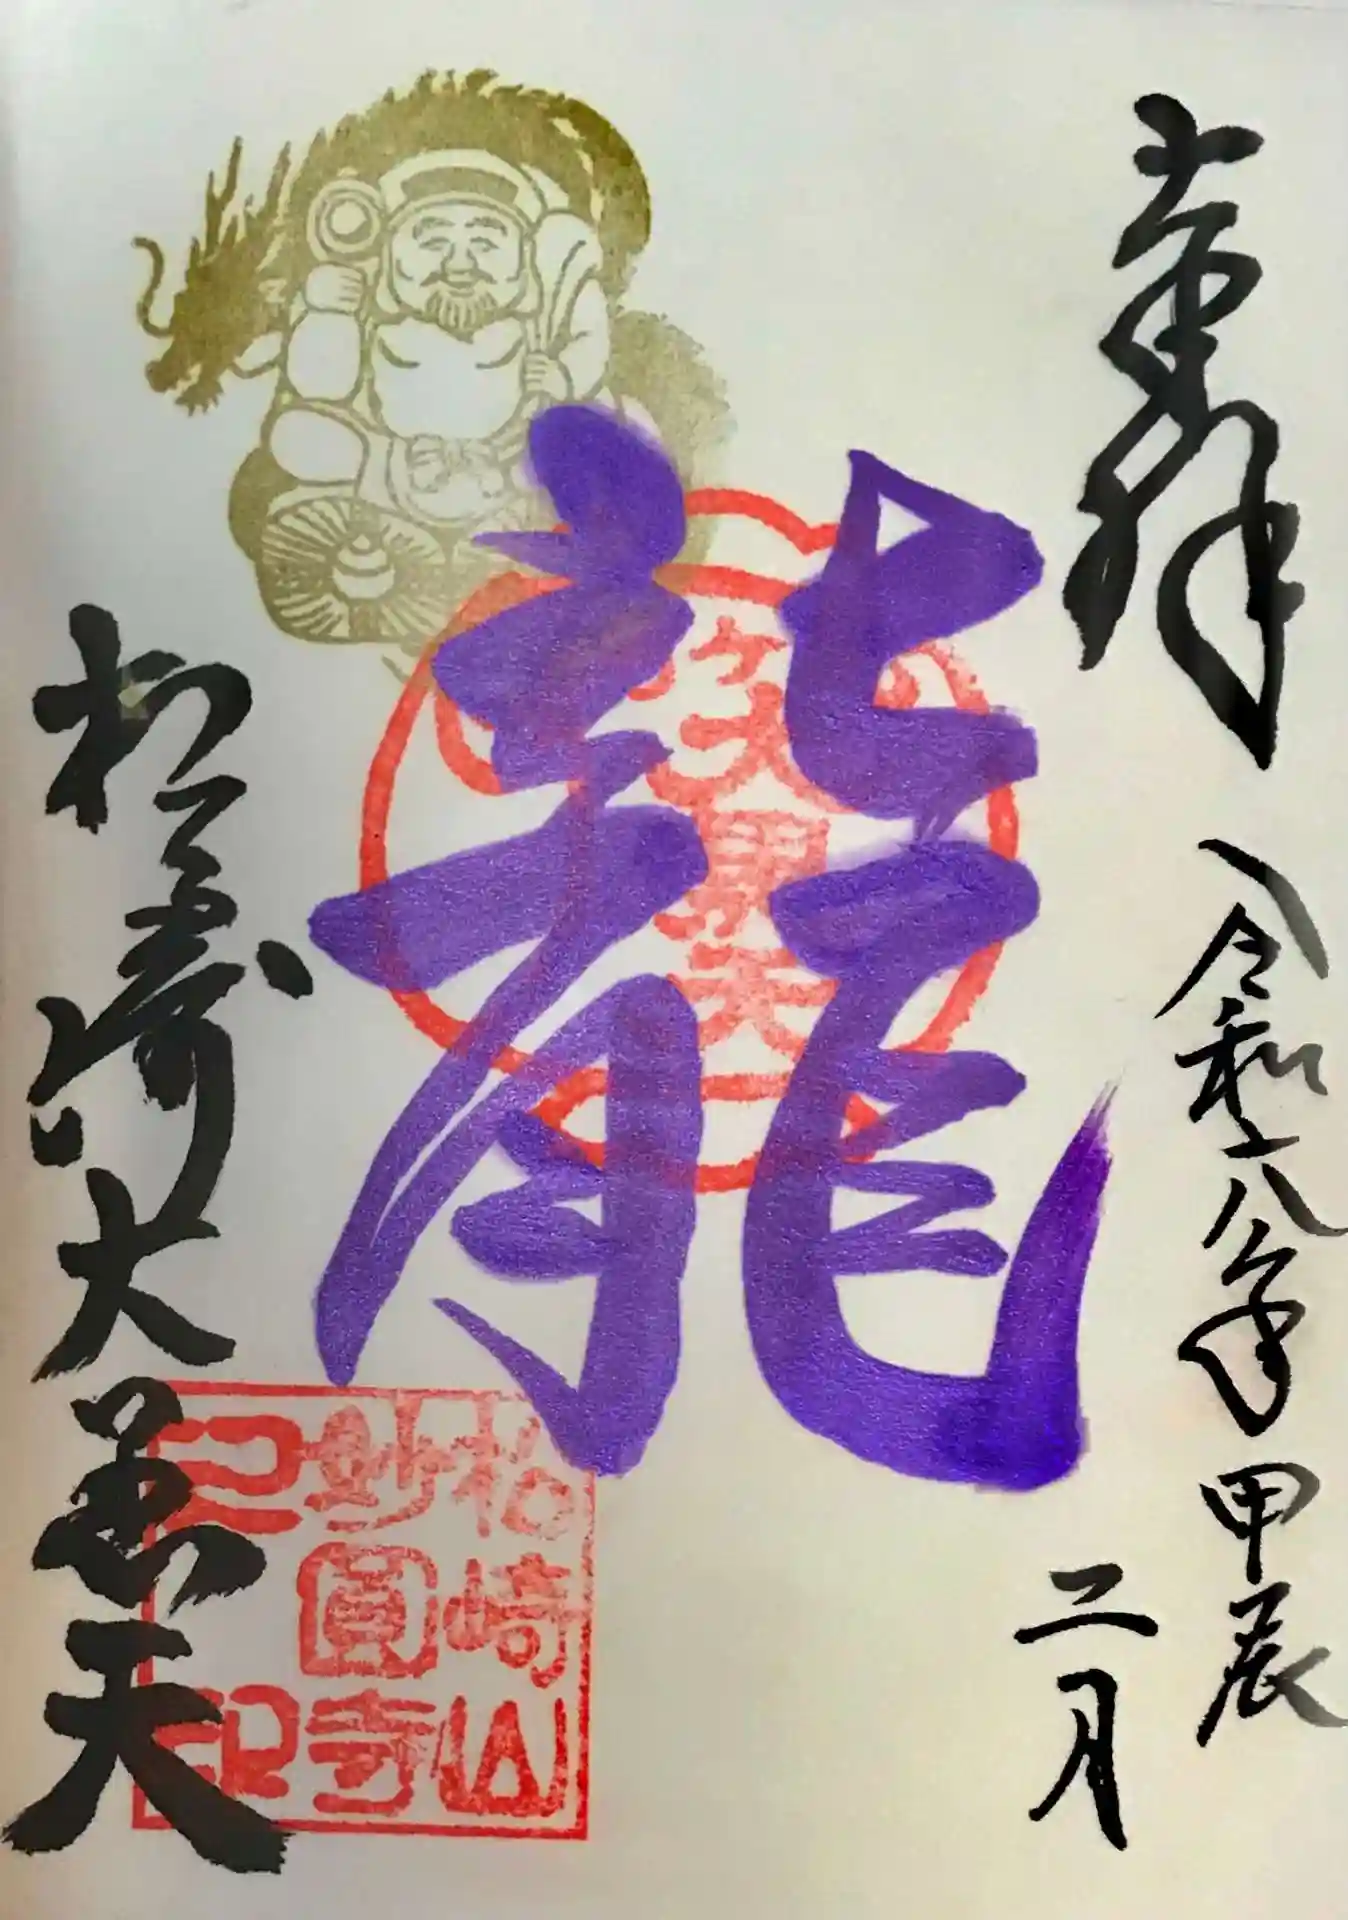 奉拝
令和六年甲辰
二月
龍
松ヶ崎大黒天
松崎山
妙圓寺
之印